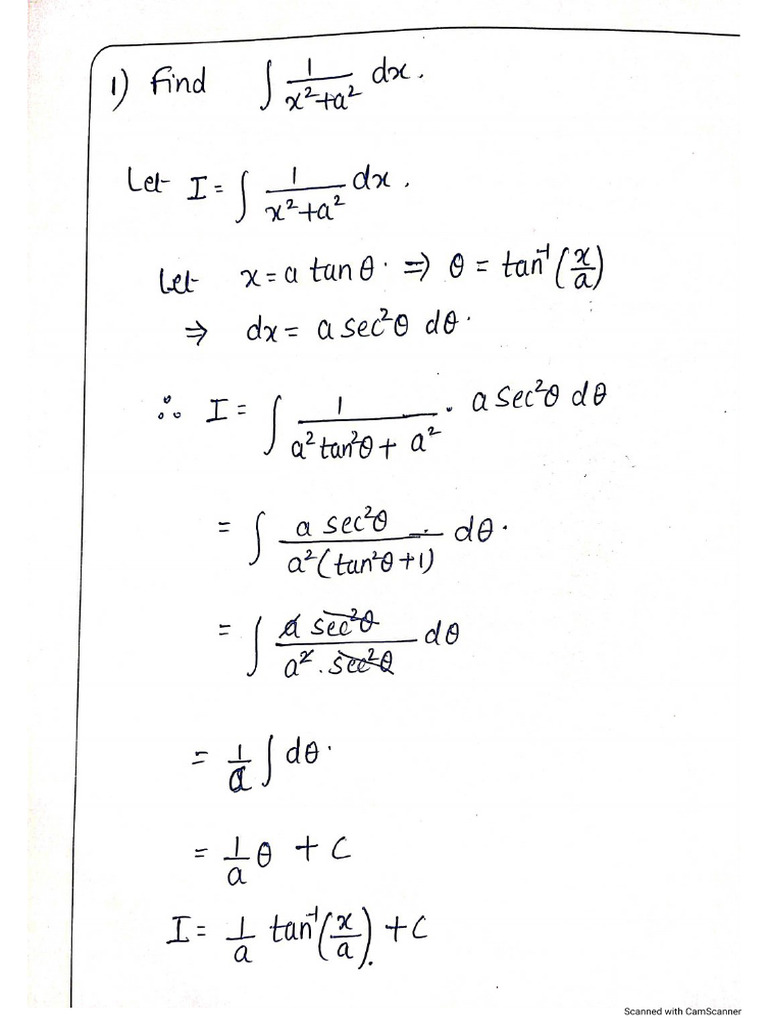 1) Find ∫ 1/(x²+a²) dx.
Let I = ∫ 1/(x²+a²) dx.
Let x = a tan θ. ⇒ θ = tan⁻¹(x/a)
⇒ dx = a sec²θ dθ.
∴ I = ∫ 1/(a² tan²θ + a²) . a sec²θ dθ
= ∫ a sec²θ/(a²(tan²θ+1)) dθ.
= ∫ a sec²θ/(a² . sec²θ) dθ
= 1/a ∫ dθ.
= 1/a θ + C
I = 1/a tan⁻¹(x/a) + C
Scanned with CamScanner